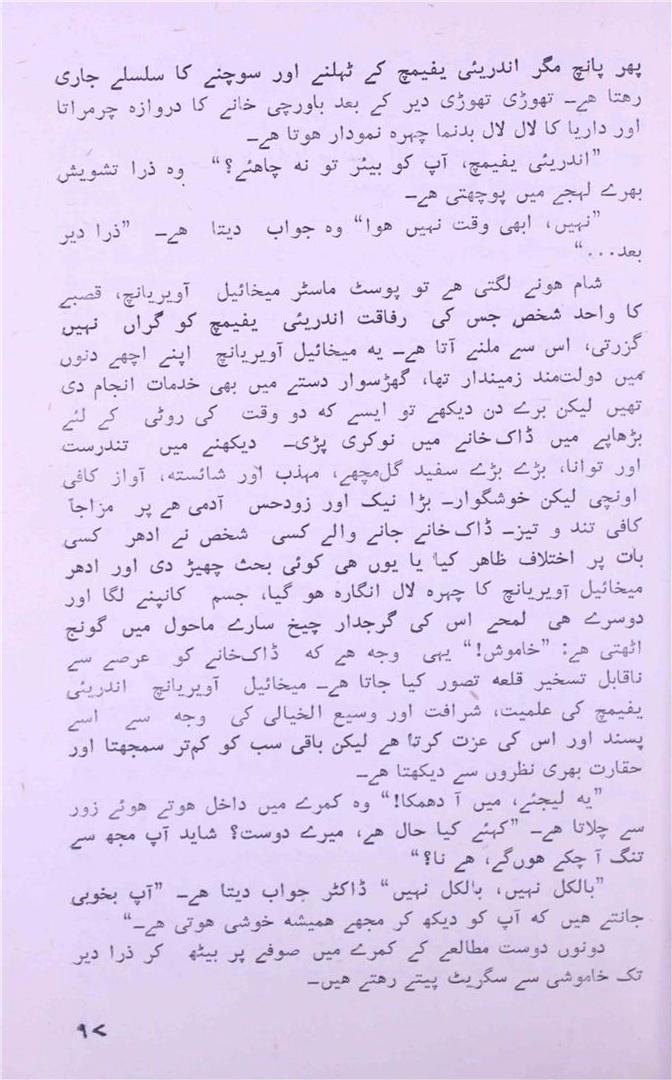 پھر پانچ مگر اندریئی یفیمچ کے ٹہلنے اور سوچنے کا سلسلے جاری
رھتا ھے۔ تھوڑی تھوڑی دیر کے بعد باورچی خانے کا دروازہ چرمراتا
اور داریا کا لال لال بدنما چہرہ نمودار ھوتا ھے۔
”اندریئی یفیمچ، آپ کو بیئر تو نہ چاھئے؟“ وہ ذرا تشویش
بھرے لہجے میں پوچھتی ھے۔
”نہیں، ابھی وقت نہیں ھوا“ وہ جواب دیتا ھے۔ ”ذرا دیر
بعد...“
شام ھونے لگتی ھے تو پوسٹ ماسٹر میخائیل آویریانچ، قصبے
کا واحد شخص جس کی رفاقت اندریئی یفیمچ کو گراں نہیں
گزرتی، اس سے ملنے آتا ھے۔ یہ میخائیل آویریانچ اپنے اچھے دنوں
میں دولت‌مند زمیندار تھا، گھڑسوار دستے میں بھی خدمات انجام دی
تھیں لیکن برے دن دیکھے تو ایسے کہ دو وقت کی روٹی کے لئے
بڑھاپے میں ڈاک‌خانے میں نوکری کرنی پڑی۔ دیکھنے میں تندرست
اور توانا، بڑے بڑے سفید گل‌مچھے، مہذب اور شائستہ، آواز کافی
اونچی لیکن خوشگوار۔ بڑا نیک اور زودحس آدمی ھے پر مزاجاً
کافی تند و تیز۔ ڈاک‌خانے جانے والے کسی شخص نے ادھر کسی
بات پر اختلاف ظاھر کیا یا یوں ھی کوئی بحث چھیڑ دی اور ادھر
میخائیل آویریانچ کا چہرہ لال انگارہ ھو گیا، جسم کانپنے لگا اور
دوسرے ھی لمحے اس کی گرجدار چیخ سارے ماحول میں گونج
اٹھتی ھے: ”خاموش!“ یہی وجہ ھے کہ ڈاک‌خانے کو عرصے سے
ناقابل تسخیر قلعہ تصور کیا جاتا ھے۔ میخائیل آویریانچ اندریئی
یفیمچ کی علمیت، شرافت اور وسیع الخیالی کی وجہ سے اسے
پسند اور اس کی عزت کرتا ھے لیکن باقی سب کو کم‌تر سمجھتا اور
حقارت بھری نظروں سے دیکھتا ھے۔
”یہ لیجئے، میں آ دھمکا!“ وہ کمرے میں داخل ھوتے ھوئے زور
سے چلاتا ھے۔ ”کہئے کیا حال ھے، میرے دوست؟ شاید آپ مجھ سے
تنگ آ چکے ھوں‌گے، ھے نا؟“
”بالکل نہیں، بالکل نہیں“ ڈاکٹر جواب دیتا ھے۔ ”آپ بخوبی
جانتے ھیں کہ آپ کو دیکھ کر مجھے ھمیشہ خوشی ھوتی ھے۔“
دونوں دوست مطالعے کے کمرے میں صوفے پر بیٹھ کر ذرا دیر
تک خاموشی سے سگریٹ پیتے رھتے ھیں۔
۹۷